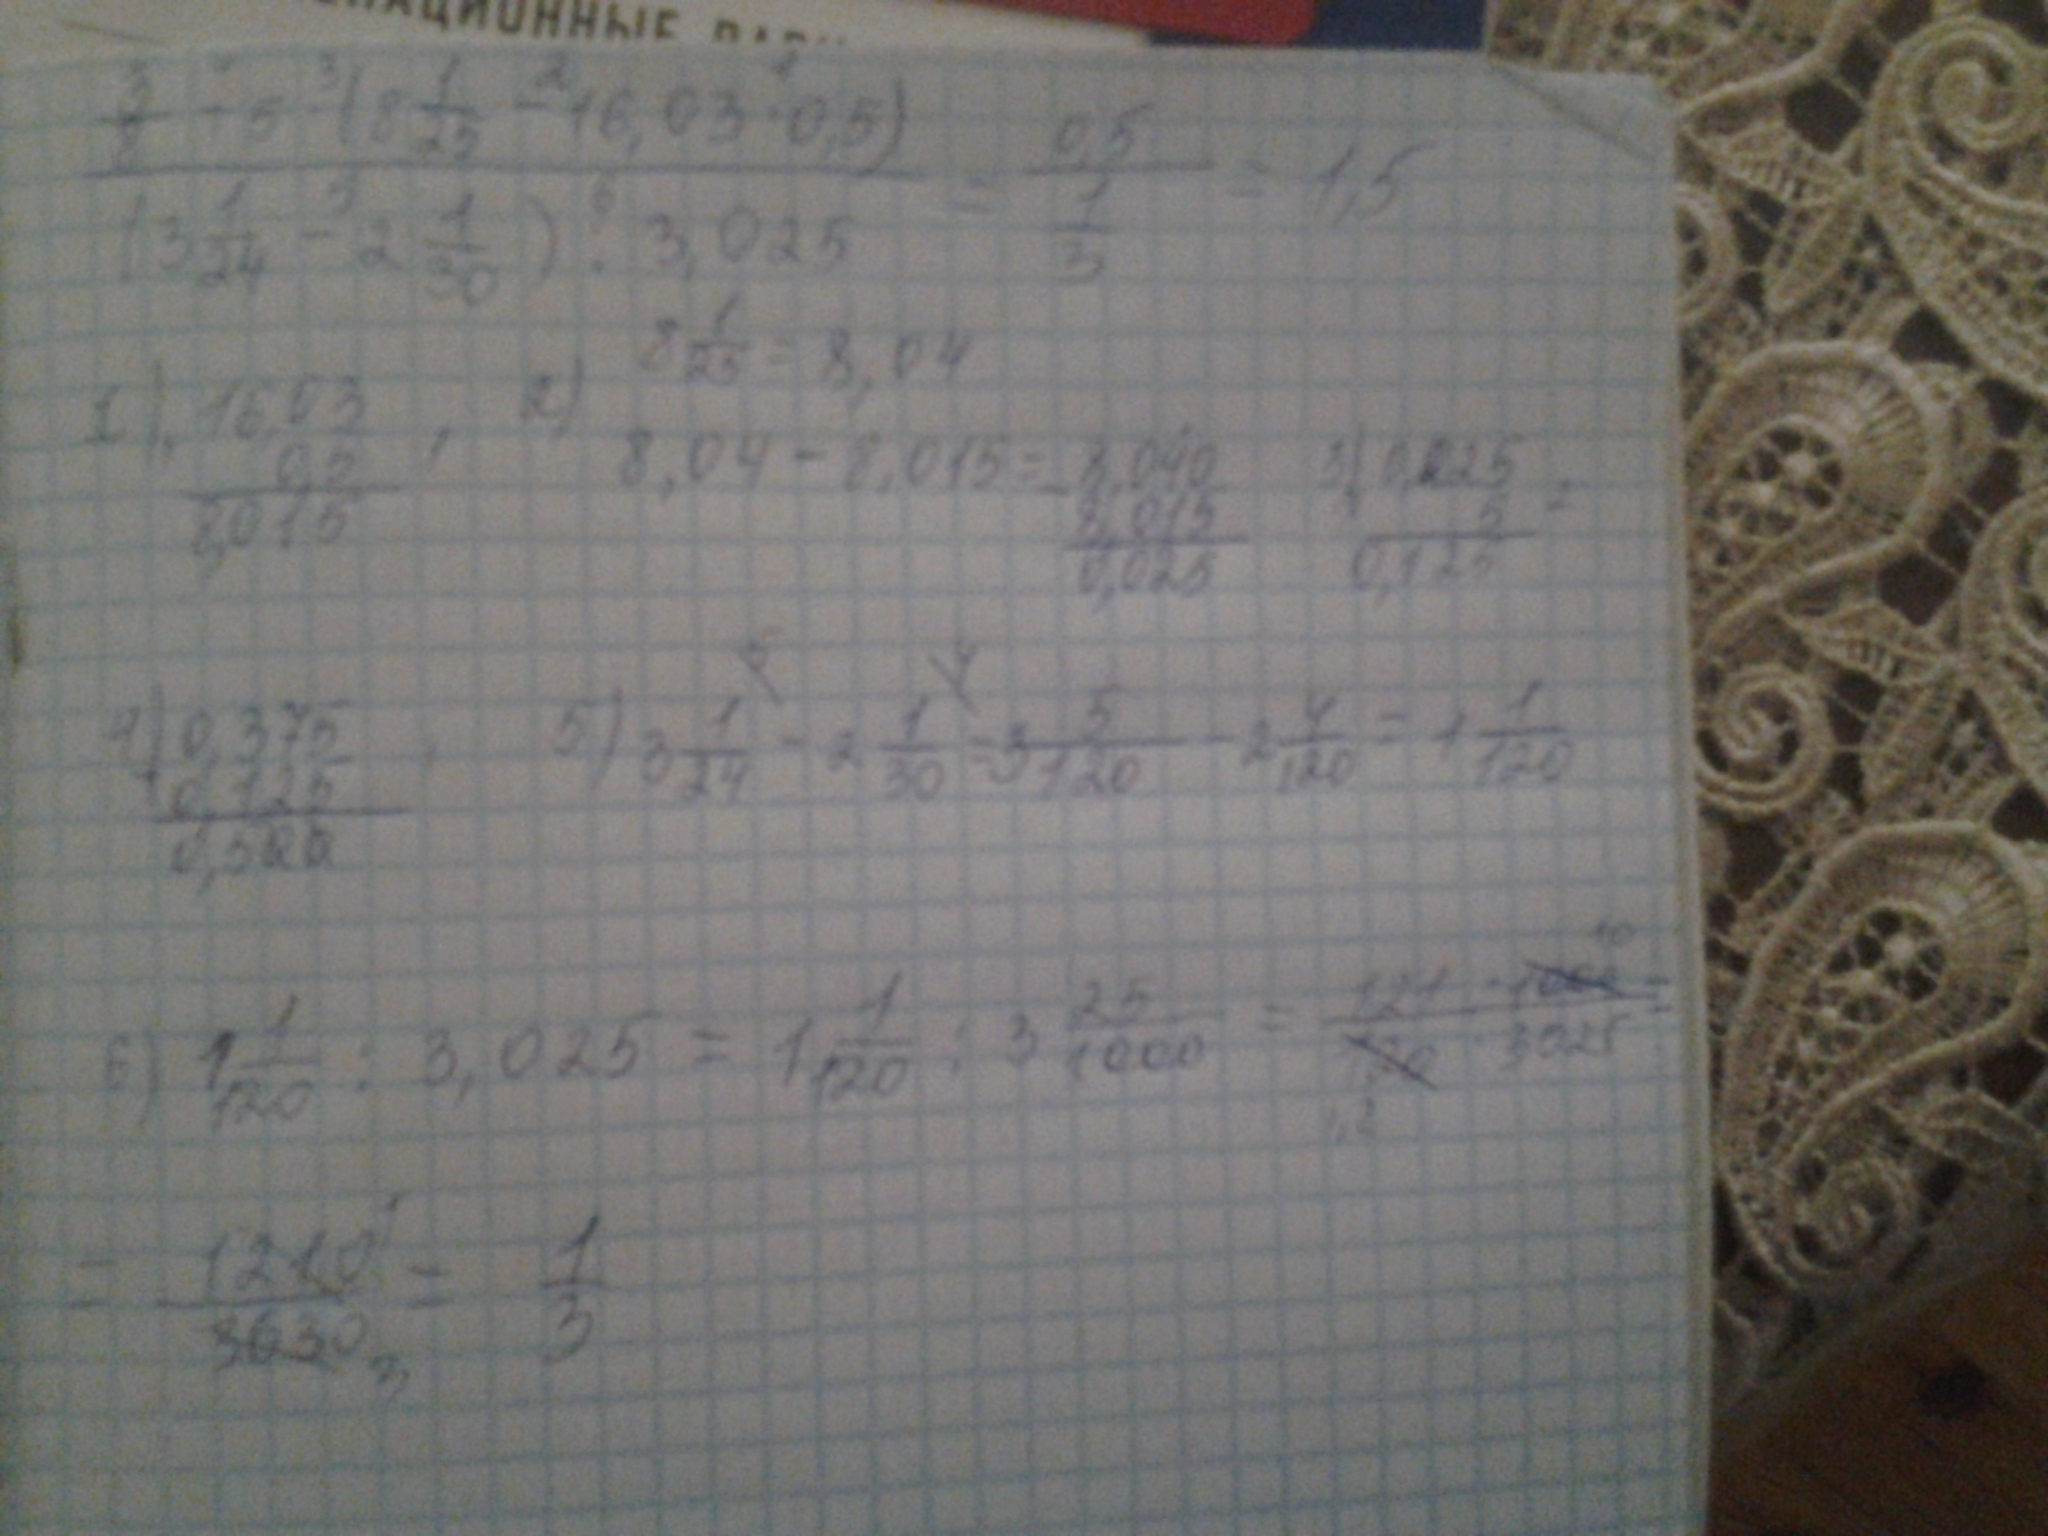 ЦИОННЫЕ
3/8 + 5 · (8 1/25 - 16,03 · 0,5) / (3 1/24 - 2 1/30) : 3,025 = 0,5 / 1/3 = 1,5
8 1/25 = 8,04
1) 16,03 0,5 8,015 , 2) 8,04 - 8,015 = 8,040 8,015 0,025 3) 0,025 5 = 0,125
4) 0,375 + 0,125 0,500 , 5) 3 1/24 - 2 1/30 = 3 5/120 - 2 4/120 = 1 1/120
6) 1 1/120 : 3,025 = 1 1/120 : 3 25/1000 = 121 · 1000 / 120 · 3025 =
= 1210/3630 = 1/3